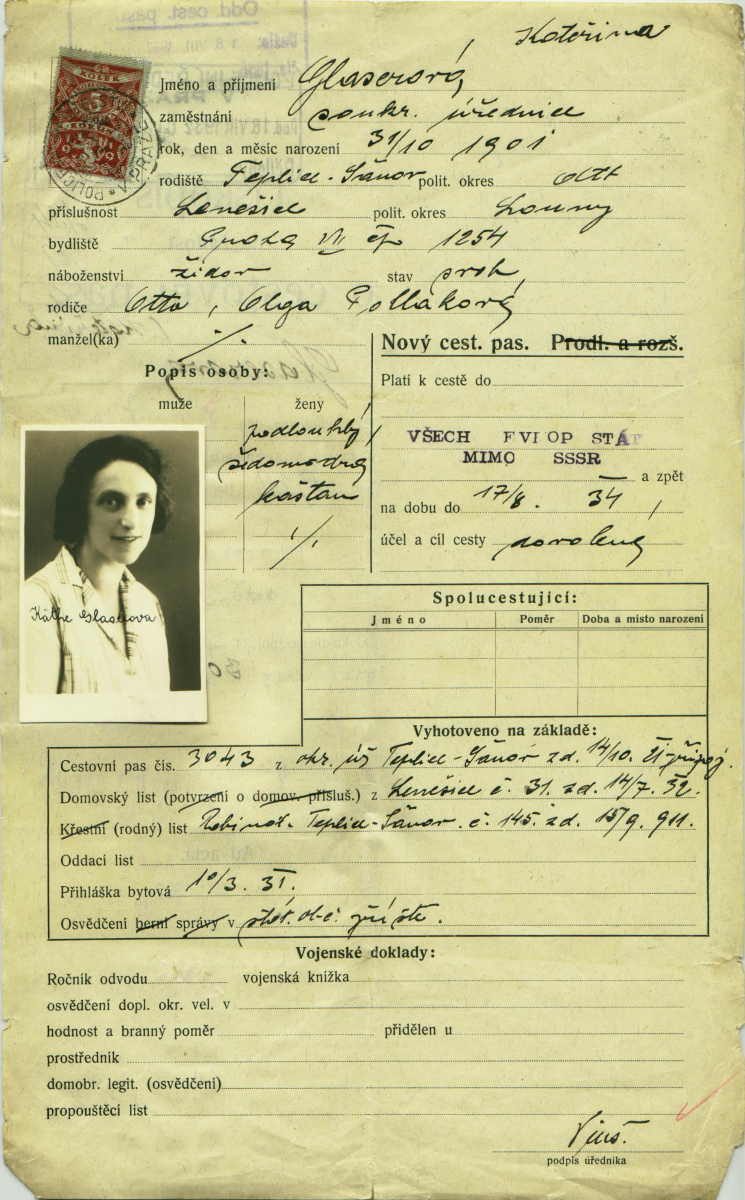 Odd. cest. pas.
Kateřina
Jméno a přijmení Glaserová
zaměstnání soukr. úřednice
rok, den a měsíc narození 31/10 1901
rodiště Teplice-Šanov polit. okres dtt
příslušnost Lenešice polit. okres Louny
bydliště Praha VII čp 1254
náboženství židov stav svob.
rodiče Otto, Olga Polláková
manžel(ka) ./.
KOLEK
5
POLICE
V PRAZE
Popis osoby:
muže ženy
podlouhlý
šedomodré
kaštan
./.
Nový cest. pas. Prodl. a rozš.
Platí k cestě do
VŠECH EVROP STÁT
MIMO SSSR
a zpět
na dobu do 17/8. 34
účel a cíl cesty dovolená
Käthe Glaserova
Spolucestující:
Jméno Poměr Doba a místo narození
Vyhotoveno na základě:
Cestovní pas čís. 3043 z okr. úř Teplice-Šanov zd. 14/10.
Domovský list (potvrzení o domov. přísluš.) z Lenešice č. 31. zd. 14/7. 32.
Křestní (rodný) list Rabinát. Teplice-Šanov. č. 145. zd. 15/9. 911.
Oddací list
Přihláška bytová 10/3. 31.
Osvědčení berní správy v stát. ob. č. příště.
Vojenské doklady:
Ročník odvodu vojenská knížka
osvědčení dopl. okr. vel. v
hodnost a branný poměr přidělen u
prostředník
domobr. legit. (osvědčení)
propouštěcí list
podpis úředníka